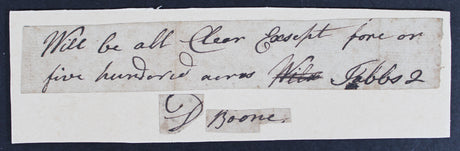 Will be all Clear Except fore or
five hundored acres Tibbs 2
D Boone.